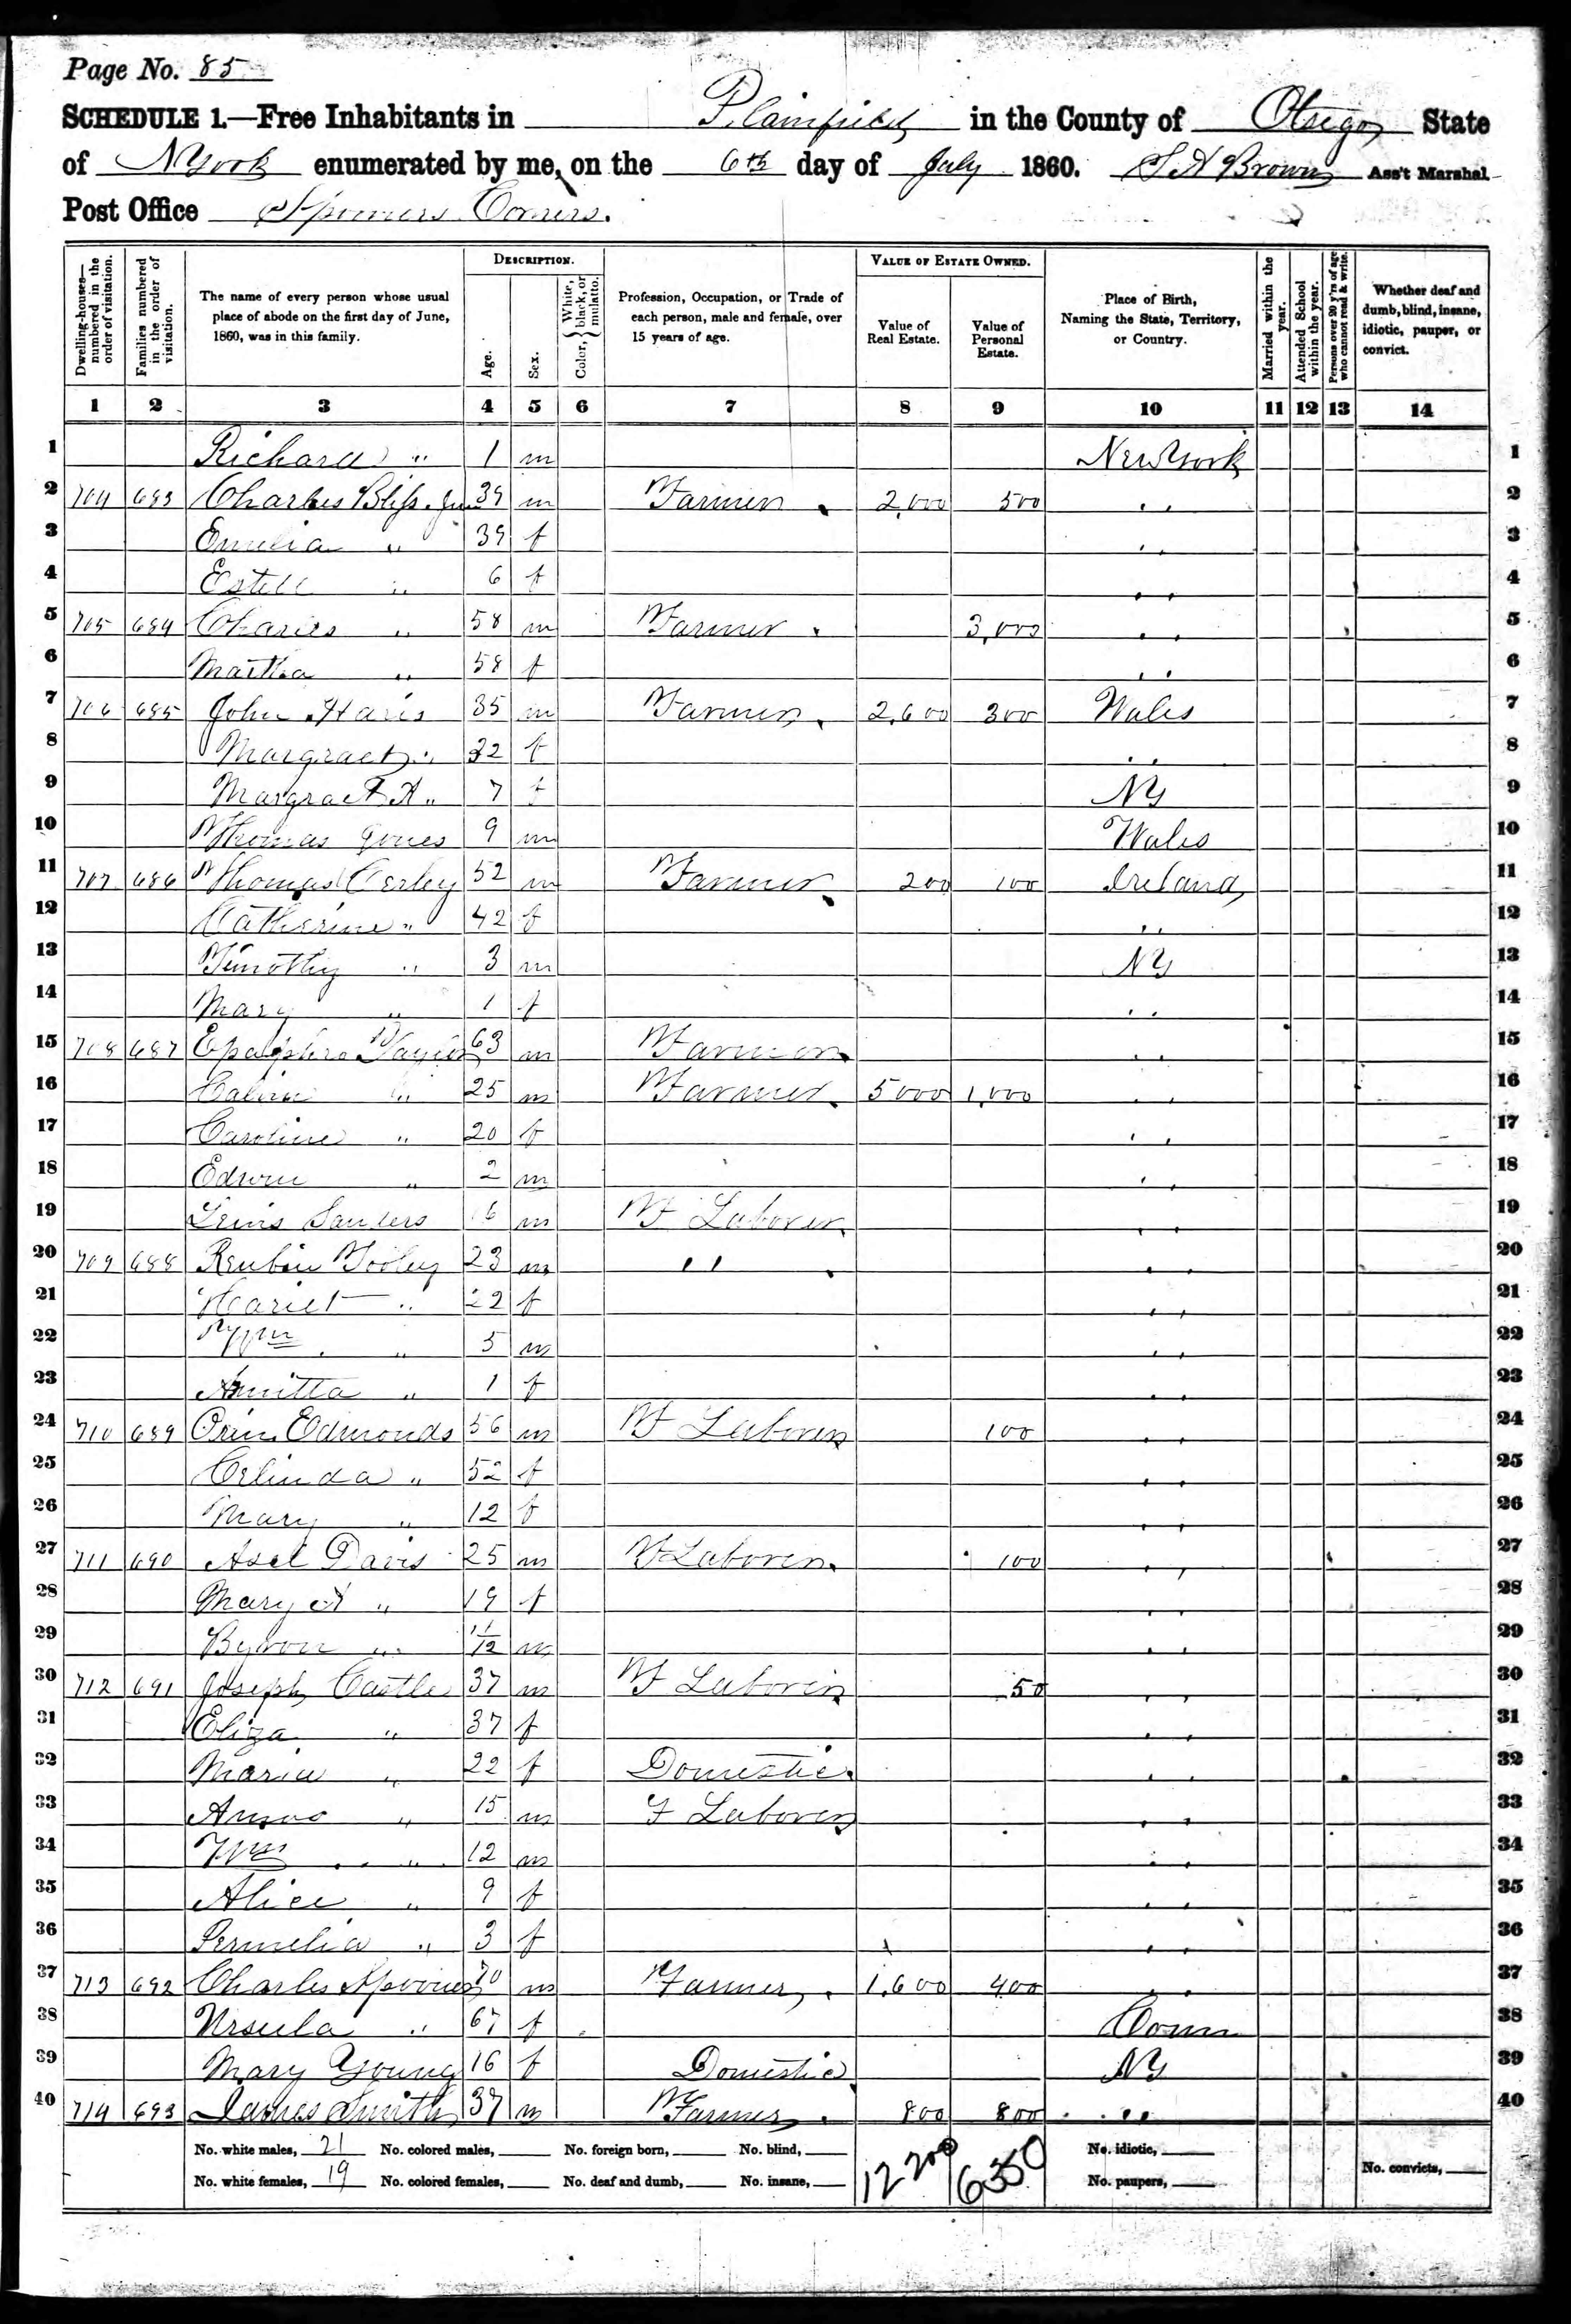 Page No. 85
SCHEDULE 1.—Free Inhabitants in Plainfield in the County of Otsego State
of N York enumerated by me, on the 6th day of July 1860. S A Brown Ass't Marshal
Post Office Spooners Corners.
Dwelling-houses—numbered in the order of visitation. Families numbered in the order of visitation. The name of every person whose usual place of abode on the first day of June, 1860, was in this family. DESCRIPTION. Age. Sex. Color, { White, black, or mulatto. Profession, Occupation, or Trade of each person, male and female, over 15 years of age. VALUE OF ESTATE OWNED. Value of Real Estate. Value of Personal Estate. Place of Birth, Naming the State, Territory, or Country. Married within the year. Attended School within the year. Persons over 20 y'rs of age who cannot read & write. Whether deaf and dumb, blind, insane, idiotic, pauper, or convict.
1 2 3 4 5 6 7 8 9 10 11 12 13 14
1 Richard " 1 m New York 1
2 704 683 Charles Bliss Jun 39 m Farmer 2,000 500 " 2
3 Emelia " 39 f " 3
4 Estell " 6 f " 4
5 705 684 Charles " 58 m Farmer 3,000 " 5
6 Martha " 58 f " 6
7 706 685 John Haris 35 m Farmer 2,600 300 Wales 7
8 Margraet " 32 f " 8
9 Margraet A " 7 f NY 9
10 Thomas Jones 9 m Wales 10
11 707 686 Thomas Cerley 52 m Farmer 200 100 Ireland 11
12 Catherine " 42 f " 12
13 Timothy " 3 m NY 13
14 Mary " 1 f " 14
15 708 687 Epaphro Taylor 63 m Farmer " 15
16 Calvin " 25 m Farmer 5000 1,000 " 16
17 Caroline " 20 f " 17
18 Edwin " 2 m " 18
19 Lewis Sanders 16 m F Laborer " 19
20 709 688 Reubin Tooley 23 m " " 20
21 Hariet " 22 f " 21
22 Wm " 5 m " 22
23 " 1 f " 23
24 710 689 Orin Edmonds 56 m F Laborer 100 " 24
25 Celinda " 52 f " 25
26 Mary " 12 f " 26
27 711 690 Asel Davis 25 m F Laborer 100 " 27
28 Mary A " 19 f " 28
29 Byron " 11/12 m " 29
30 712 691 Joseph Castle 37 m F Laborer 50 " 30
31 Eliza " 37 f " 31
32 Maria " 22 f Domestic " 32
33 Amos " 15 m F Laborer " 33
34 Wm " 12 m " 34
35 Alice " 9 f " 35
36 Permelia " 3 f " 36
37 713 692 Charles Spooner 70 m Farmer 1,600 400 " 37
38 Ursula " 67 f Conn 38
39 Mary Young 16 f Domestic NY 39
40 714 693 James Smith 37 m Farmer 800 800 " 40
No. white males, 21 No. colored males, No. foreign born, No. blind, 12200 6350 No. idiotic,
No. white females, 19 No. colored females, No. deaf and dumb, No. insane, No. paupers, No. convicts,